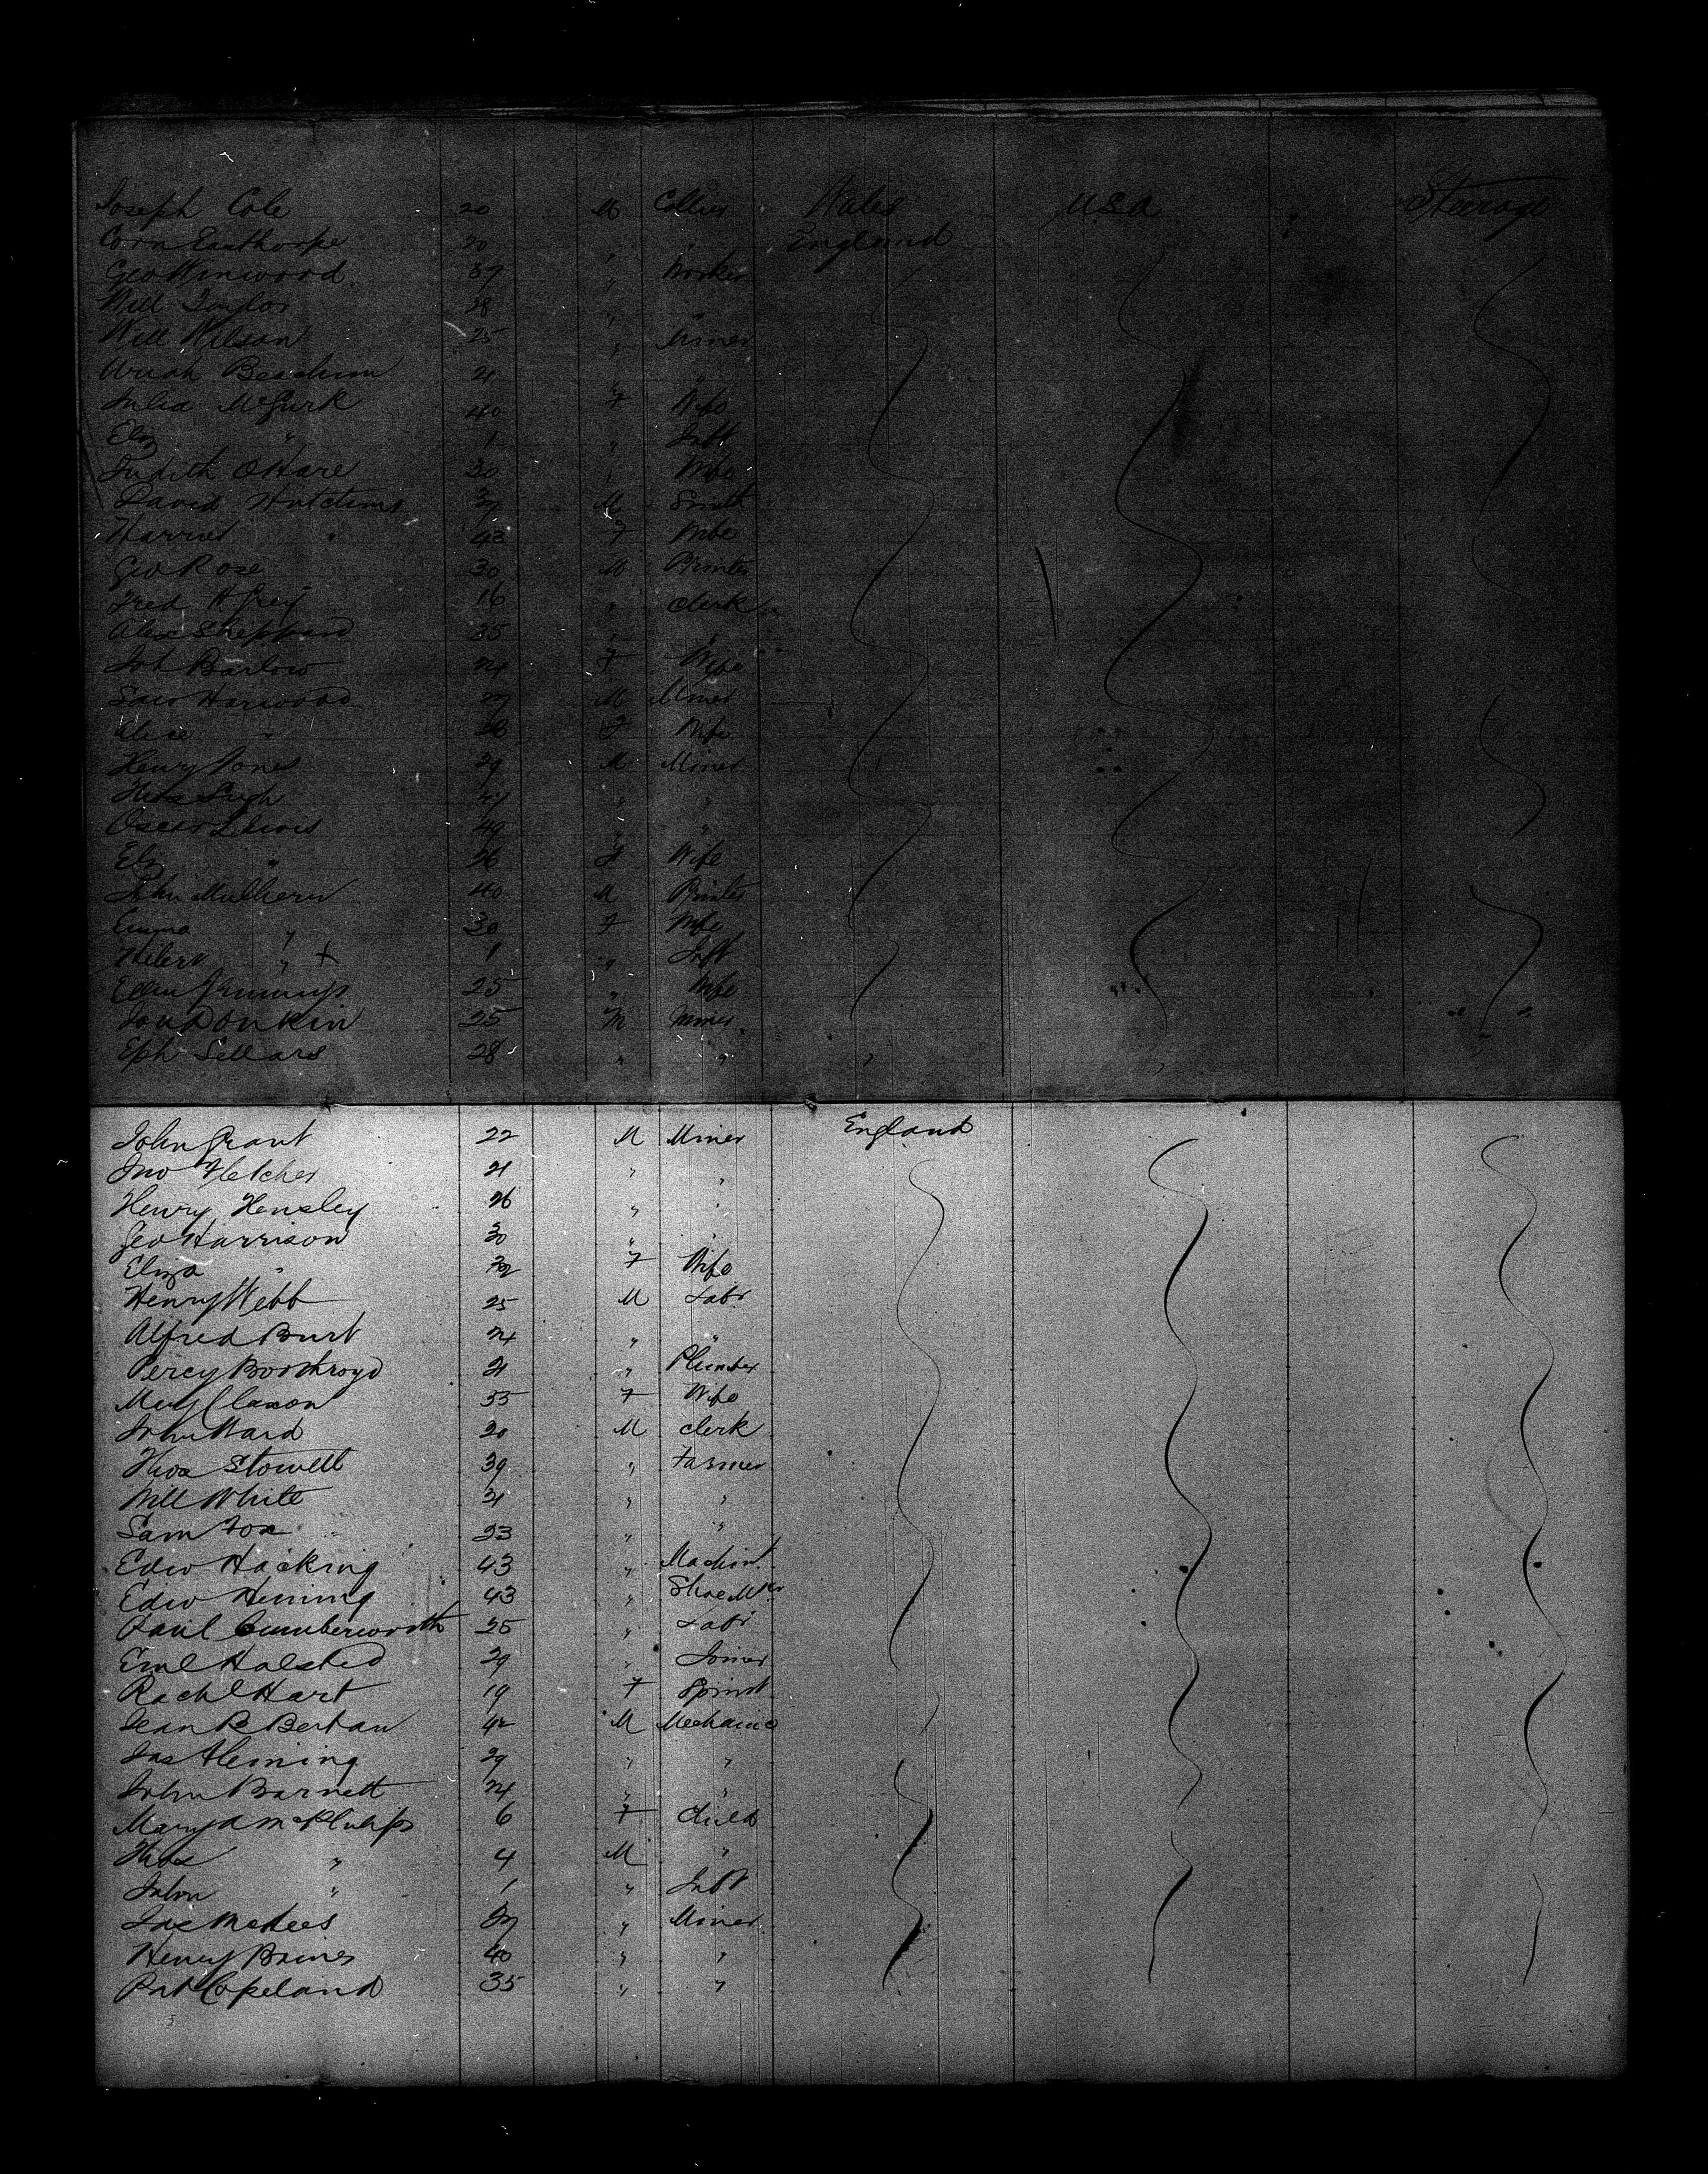 Joseph Cole 20 M Collier Wales USA " Steerage
Corn Easthorpe 20 " " England
Geo Winwood 37 " Worker
Will Taylor 28 " "
Will Wilson 25 " Miner
Uriah Beachim 21 " "
Julia McGurk 40 F Wife
Eliz " 1 " Inft
Judith O'Hare 30 " Wife
David Hutchins 37 M Smith
Harriet " 43 F Wife
Geo Rose 30 M Printer
Fred H Grey 16 " Clerk
Alex Sheppard 35 " "
Joh Barlow 24 F Wife
Sam Harwood 27 M Miner
Alice " 26 F Wife
Henry Jones 29 M Miner
Thos Leigh 47 " "
Oscar Lewis 49 " "
Eliz " 26 F Wife
John Mulhern 40 M Printer
Emma " 30 F Wife
" + 1 " Inft
Ellen Jennings 25 " Wife
Jon Donkin 25 M Miner
Eph Sellars 28 " " "
John Grant 22 M Miner England
Jno Fletcher 21 " "
Henry Hensley 26 " "
Geo Harrison 30 " "
Eliza " 32 F Wife
Henry Webb 25 M Labr
Alfred Burt 24 " "
Percy Boothroyd 21 " Plumber
Mary Claxon 35 F Wife
John Ward 20 M Clerk
Thos Stowell 39 " Farmer
Will White 21 " "
Sam Fox 23 " "
Edw Hacking 43 " Machint
Edw Heming 43 " Shoe Mkr
Paul Cumberworth 25 " Labr
Eml Halsted 29 " Joiner
Rachl Hart 19 F Spinst
Jean P Bertau 42 M Mechanic
Jas Fleming 29 " "
John Barnett 24 " "
Mary A McPhilips 6 F Child
Thos " 4 M "
John " 1 " Inft
Jas McKees 37 " Miner
Henry Baines 40 " "
Pat Copeland 35 " "